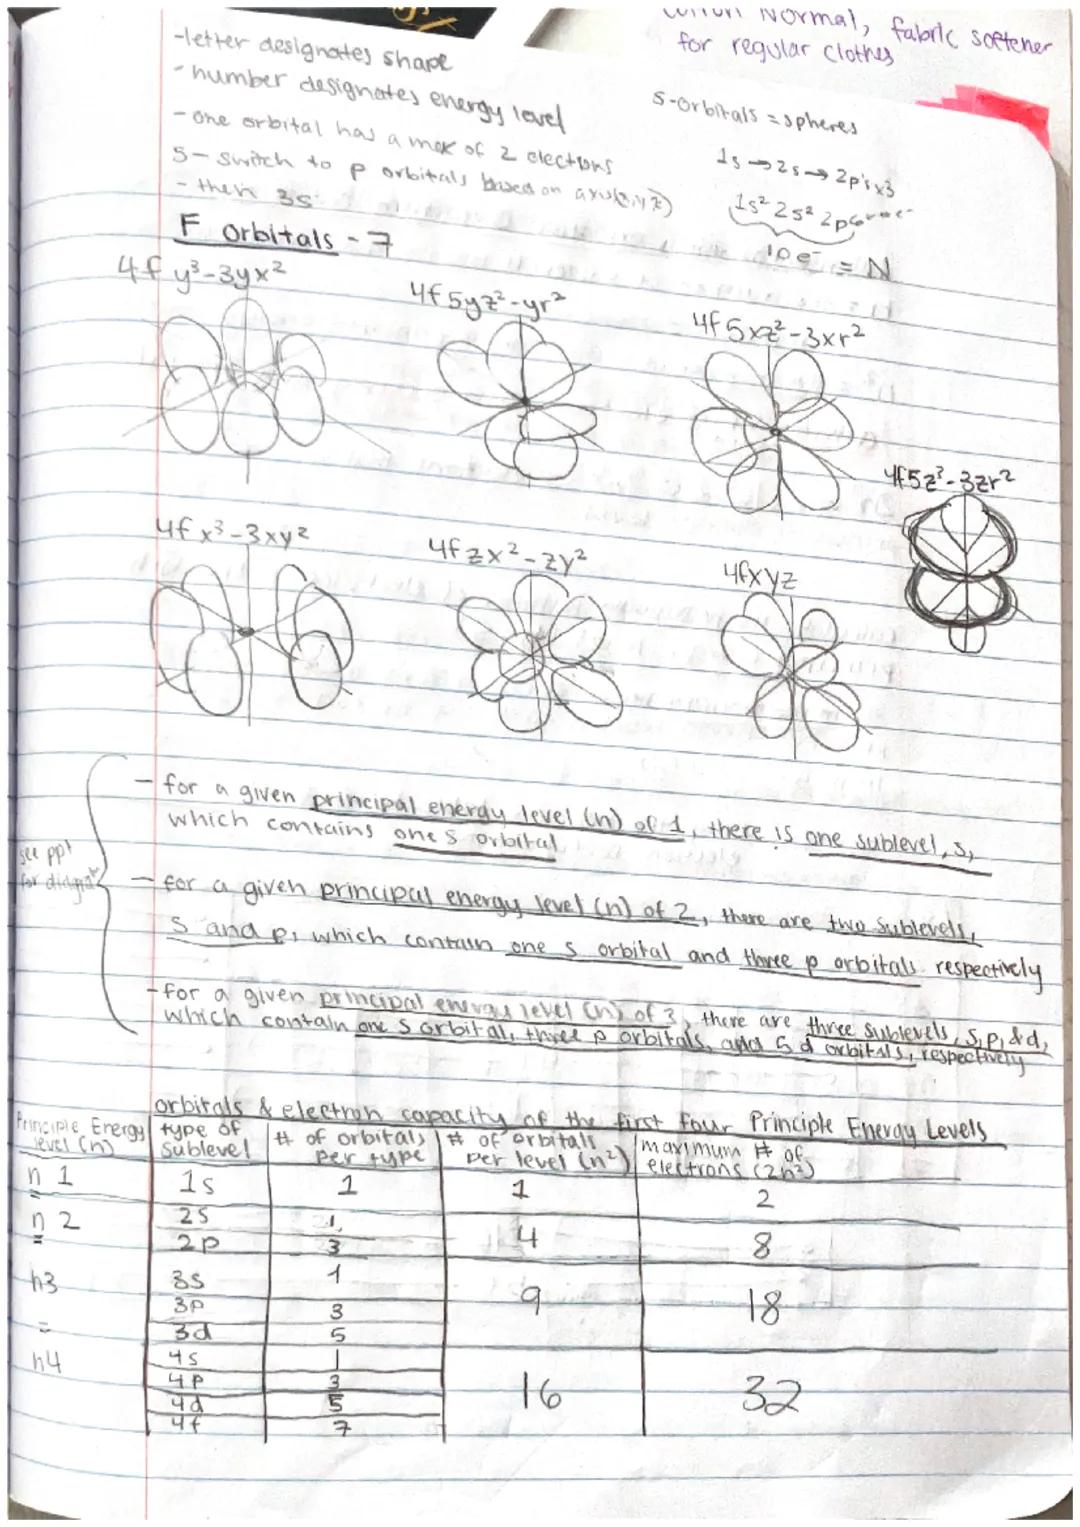 Normal, fabric softener
for regular clothes
-letter designates shape
-number designates energy level
-one orbital has a max of 2 electrons
S- switch to p orbitals based on axis(x,y,z)
-then 3s
s-orbitals = spheres
1s → 2s → 2p's x3
1s² 2s² 2p6
10 e⁻ = N
F orbitals - 7
4f y³-3yx²
4f 5yz²-yr²
4f 5xz²-3xr²
4f5z³-3zr²
4f x³-3xy²
4f zx²-zy²
4fxyz
see ppt
for
- for a given principal energy level (n) of 1, there is one sublevel, s,
which contains one s orbital
- for a given principal energy level (n) of 2, there are two sublevels,
s and p, which contain one s orbital and three p orbitals respectively
-for a given principal energy level (n) of 3, there are three sublevels, s, p, & d,
which contain one s orbital, three p orbitals, and 5 d orbitals, respectively
orbitals & electron capacity of the first four Principle Energy Levels
Principle Energy level (n) type of sublevel # of orbitals per type # of orbitals per level (n²) maximum # of electrons (2n²)
n 1 1s 1 1 2
n 2 2s 1 4 8
2p 3
n3 3s 1 9 18
3p 3
3d 5
n4 4s 1 16 32
4p 3
4d 5
4f 7